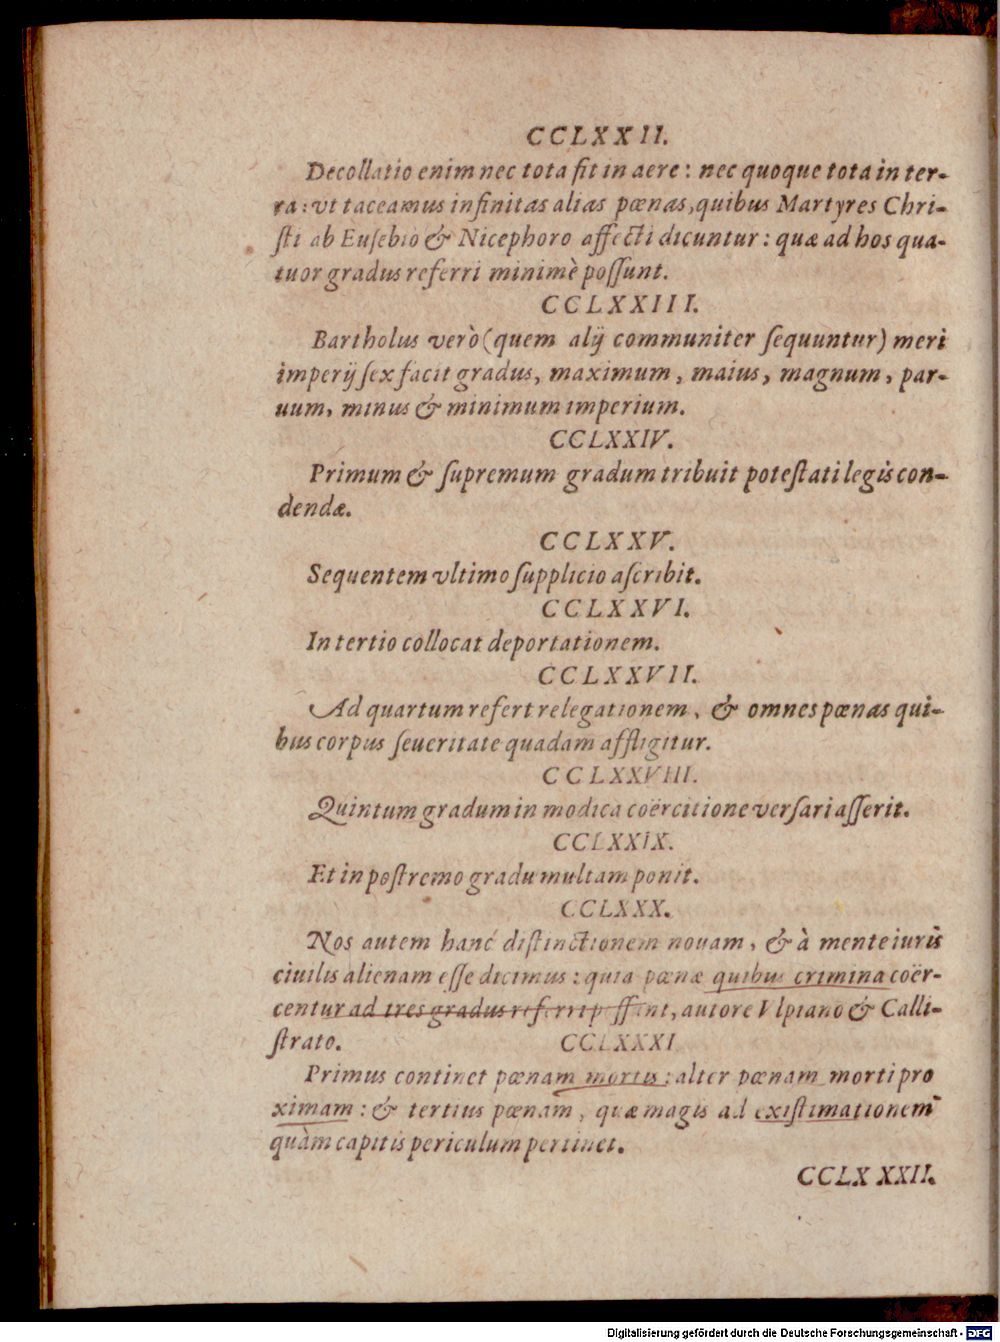 CCLXXII.
Decollatio enim nec tota fit in aere : nec quoque tota in ter-
ra : vt taceamus infinitas alias pœnas, quibus Martyres Chri-
ſti ab Euſebio & Nicephoro affecti dicuntur : quæ ad hos qua-
tuor gradus referri minimè poſſunt.
CCLXXIII.
Bartholus verò (quem alij communiter ſequuntur) meri
imperij ſex facit gradus, maximum, maius, magnum, par-
uum, minus & minimum imperium.
CCLXXIV.
Primum & ſupremum gradum tribuit poteſtati legis con-
dendæ.
CCLXXV.
Sequentem vltimo ſupplicio aſcribit.
CCLXXVI.
In tertio collocat deportationem.
CCLXXVII.
Ad quartum refert relegationem, & omnes pœnas qui-
bus corpus ſeueritate quadam affligitur.
CCLXXVIII.
Quintum gradum in modica coërcitione verſari aſſerit.
CCLXXIX.
Et in poſtremo gradu multam ponit.
CCLXXX.
Nos autem hanc diſtinctionem nouam, & à mente iuris
ciuilis alienam eſſe dicimus : quia pœnæ quibus crimina coër-
centur ad tres gradus referri poſſunt, autore Vlpiano & Calli-
ſtrato.
CCLXXXI
Primus continet pœnam mortis : alter pœnam morti pro
ximam : & tertius pœnam, quæ magis ad exiſtimationem
quàm capitis periculum pertinet.
CCLXXXII.
Digitalisierung gefördert durch die Deutsche Forschungsgemeinschaft - DFG